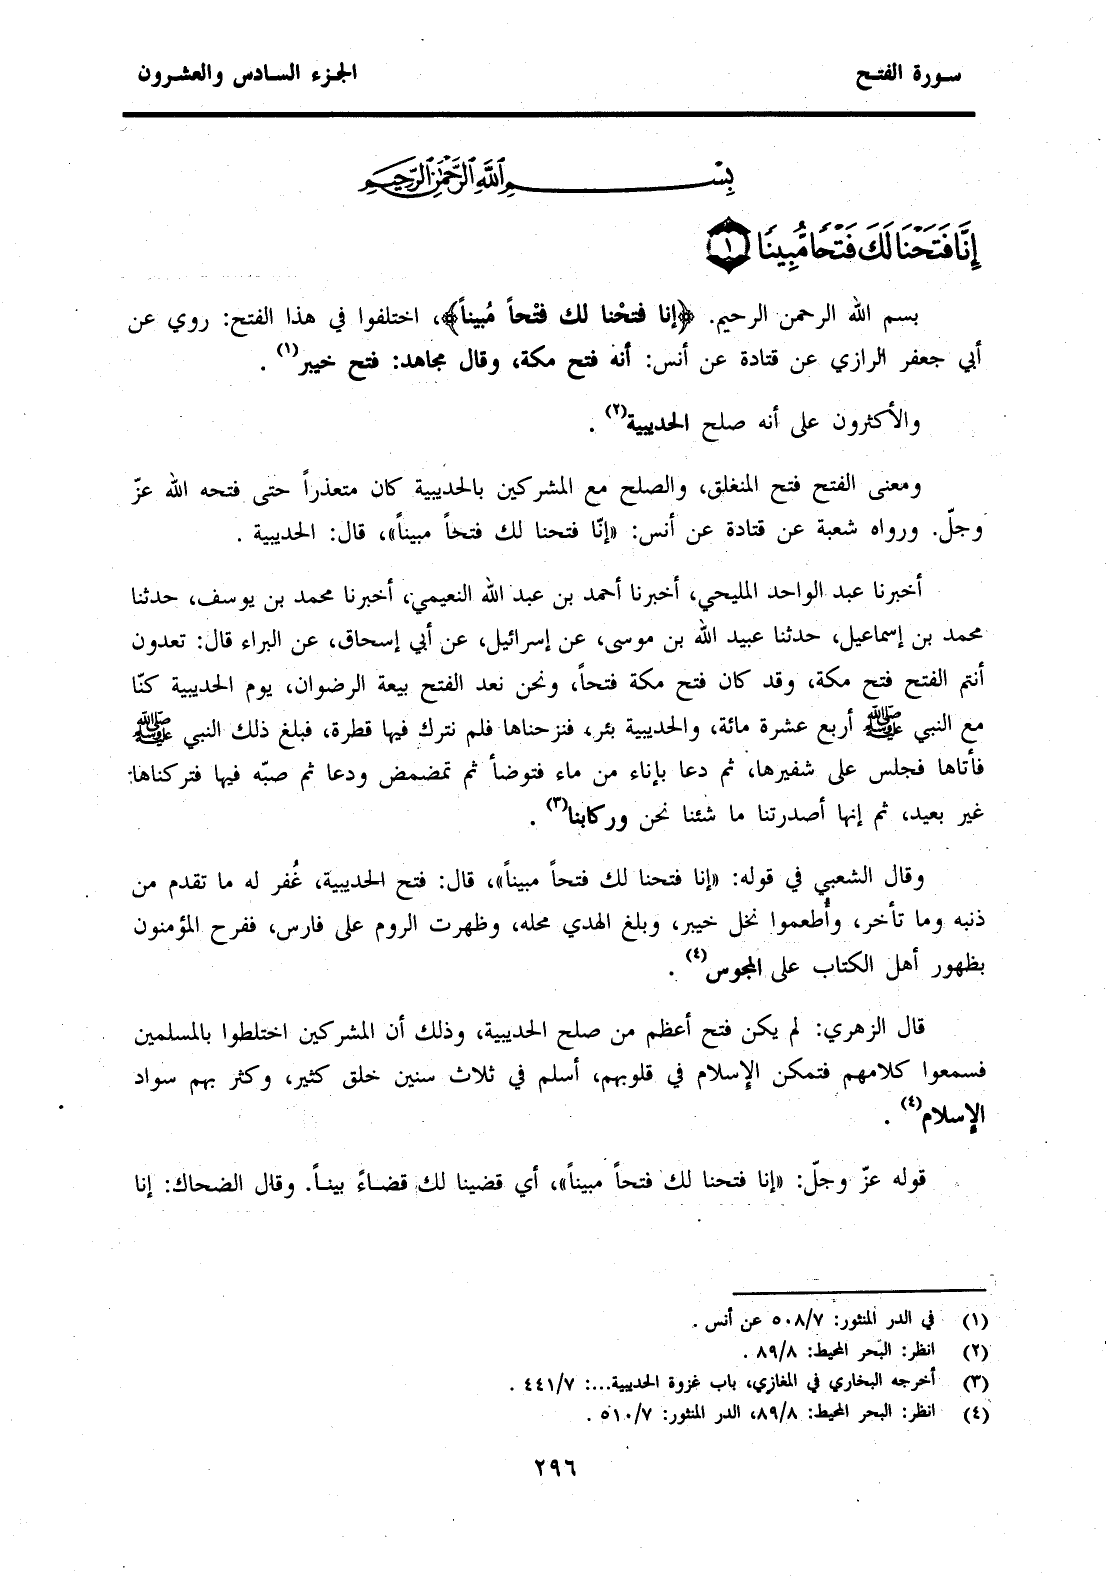 سورة الفتح
الجزء السادس والعشرون
بِسْمِ اللَّهِ الرَّحْمَٰنِ الرَّحِيمِ
إِنَّا فَتَحْنَا لَكَ فَتْحًا مُّبِينًا ١
بسم الله الرحمن الرحيم. ﴿إنا فتحْنا لك فتْحاً مُبيناً﴾، اختلفوا في هذا الفتح: روي عن
أبي جعفر الرازي عن قتادة عن أنس: أنه فتح مكة، وقال مجاهد: فتح خيبر(١) .
والأكثرون على أنه صلح الحديبية(٢) .
ومعنى الفتح فتح المنغلق، والصلح مع المشركين بالحديبية كان متعذراً حتى فتحه الله عزّ
وجلّ. ورواه شعبة عن قتادة عن أنس: «إنّا فتحنا لك فتحاً مبيناً»، قال: الحديبية .
أخبرنا عبد الواحد المليحي، أخبرنا أحمد بن عبد الله النعيمي، أخبرنا محمد بن يوسف، حدثنا
محمد بن إسماعيل، حدثنا عبيد الله بن موسى، عن إسرائيل، عن أبي إسحاق، عن البراء قال: تعدون
أنتم الفتح فتح مكة، وقد كان فتح مكة فتحاً، ونحن نعد الفتح بيعة الرضوان، يوم الحديبية كنّا
مع النبي ﷺ أربع عشرة مائة، والحديبية بئر، فنزحناها فلم نترك فيها قطرة، فبلغ ذلك النبي ﷺ
فأتاها فجلس على شفيرها، ثم دعا بإناء من ماء فتوضأ ثم تمضمض ودعا ثم صبّه فيها فتركناها
غير بعيد، ثم إنها أصدرتنا ما شئنا نحن وركابنا(٣) .
وقال الشعبي في قوله: «إنا فتحنا لك فتحاً مبيناً»، قال: فتح الحديبية، غُفر له ما تقدم من
ذنبه وما تأخر، وأُطعموا نخل خيبر، وبلغ الهدي محله، وظهرت الروم على فارس، ففرح المؤمنون
بظهور أهل الكتاب على المجوس(٤) .
قال الزهري: لم يكن فتح أعظم من صلح الحديبية، وذلك أن المشركين اختلطوا بالمسلمين
فسمعوا كلامهم فتمكن الإسلام في قلوبهم، أسلم في ثلاث سنين خلق كثير، وكثر بهم سواد
الإسلام(٤) .
قوله عزّ وجلّ: «إنا فتحنا لك فتحاً مبيناً»، أي قضينا لك قضاءً بيناً. وقال الضحاك: إنا
(١) في الدر المنثور: ٥٠٨/٧ عن أنس .
(٢) انظر: البحر المحيط: ٨٩/٨ .
(٣) أخرجه البخاري في المغازي، باب غزوة الحديبية...: ٤٤١/٧ .
(٤) انظر: البحر المحيط: ٨٩/٨، الدر المنثور: ٥١٠/٧ .
٢٩٦